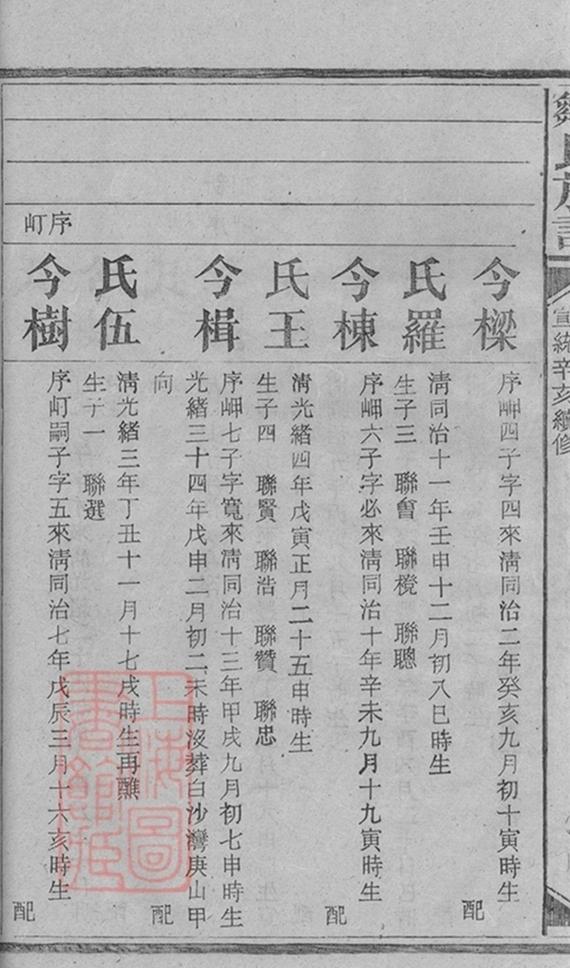 鄒氏族譜
宣統辛亥續修
今樑
序岬四子字四來清同治二年癸亥九月初十寅時生
配
氏羅
清同治十一年壬申十二月初八巳時生
生子三 聯會 聯欖 聯聰
今棟
序岬六子字必來清同治十年辛未九月十九寅時生
配
氏王
清光緒四年戊寅正月二十五申時生
生子四 聯賢 聯浩 聯贊 聯忠
今楫
序岬七子字寬來清同治十三年甲戌九月初七申時生
光緒三十四年戊申二月初二未時沒葬白沙灣庚山甲
向
配
氏伍
清光緒三年丁丑十一月十七戌時生再醮
生子一 聯選
序㟀
今樹
序㟀嗣子字五來清同治七年戊辰三月十六亥時生
配
上海圖書館藏